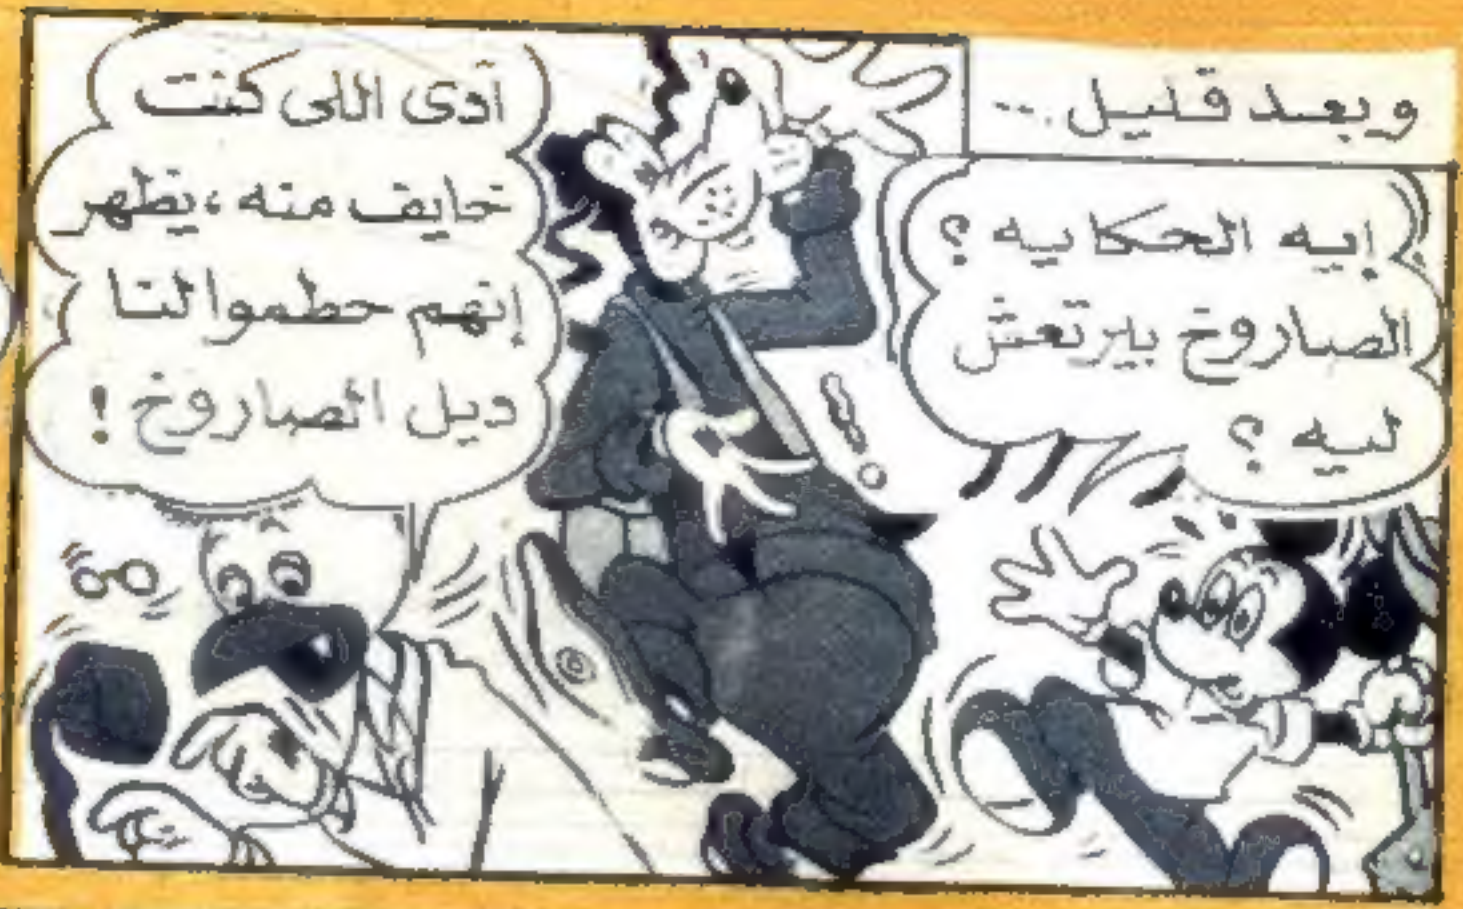 وبعد قليل ...
إيه الحكاييه ؟
الصاروخ بيرتعش
ليه ؟
آدى اللى كنت
خايف منه ، يظهر
إنهم حطموا لنا
ديل الصاروخ !
!